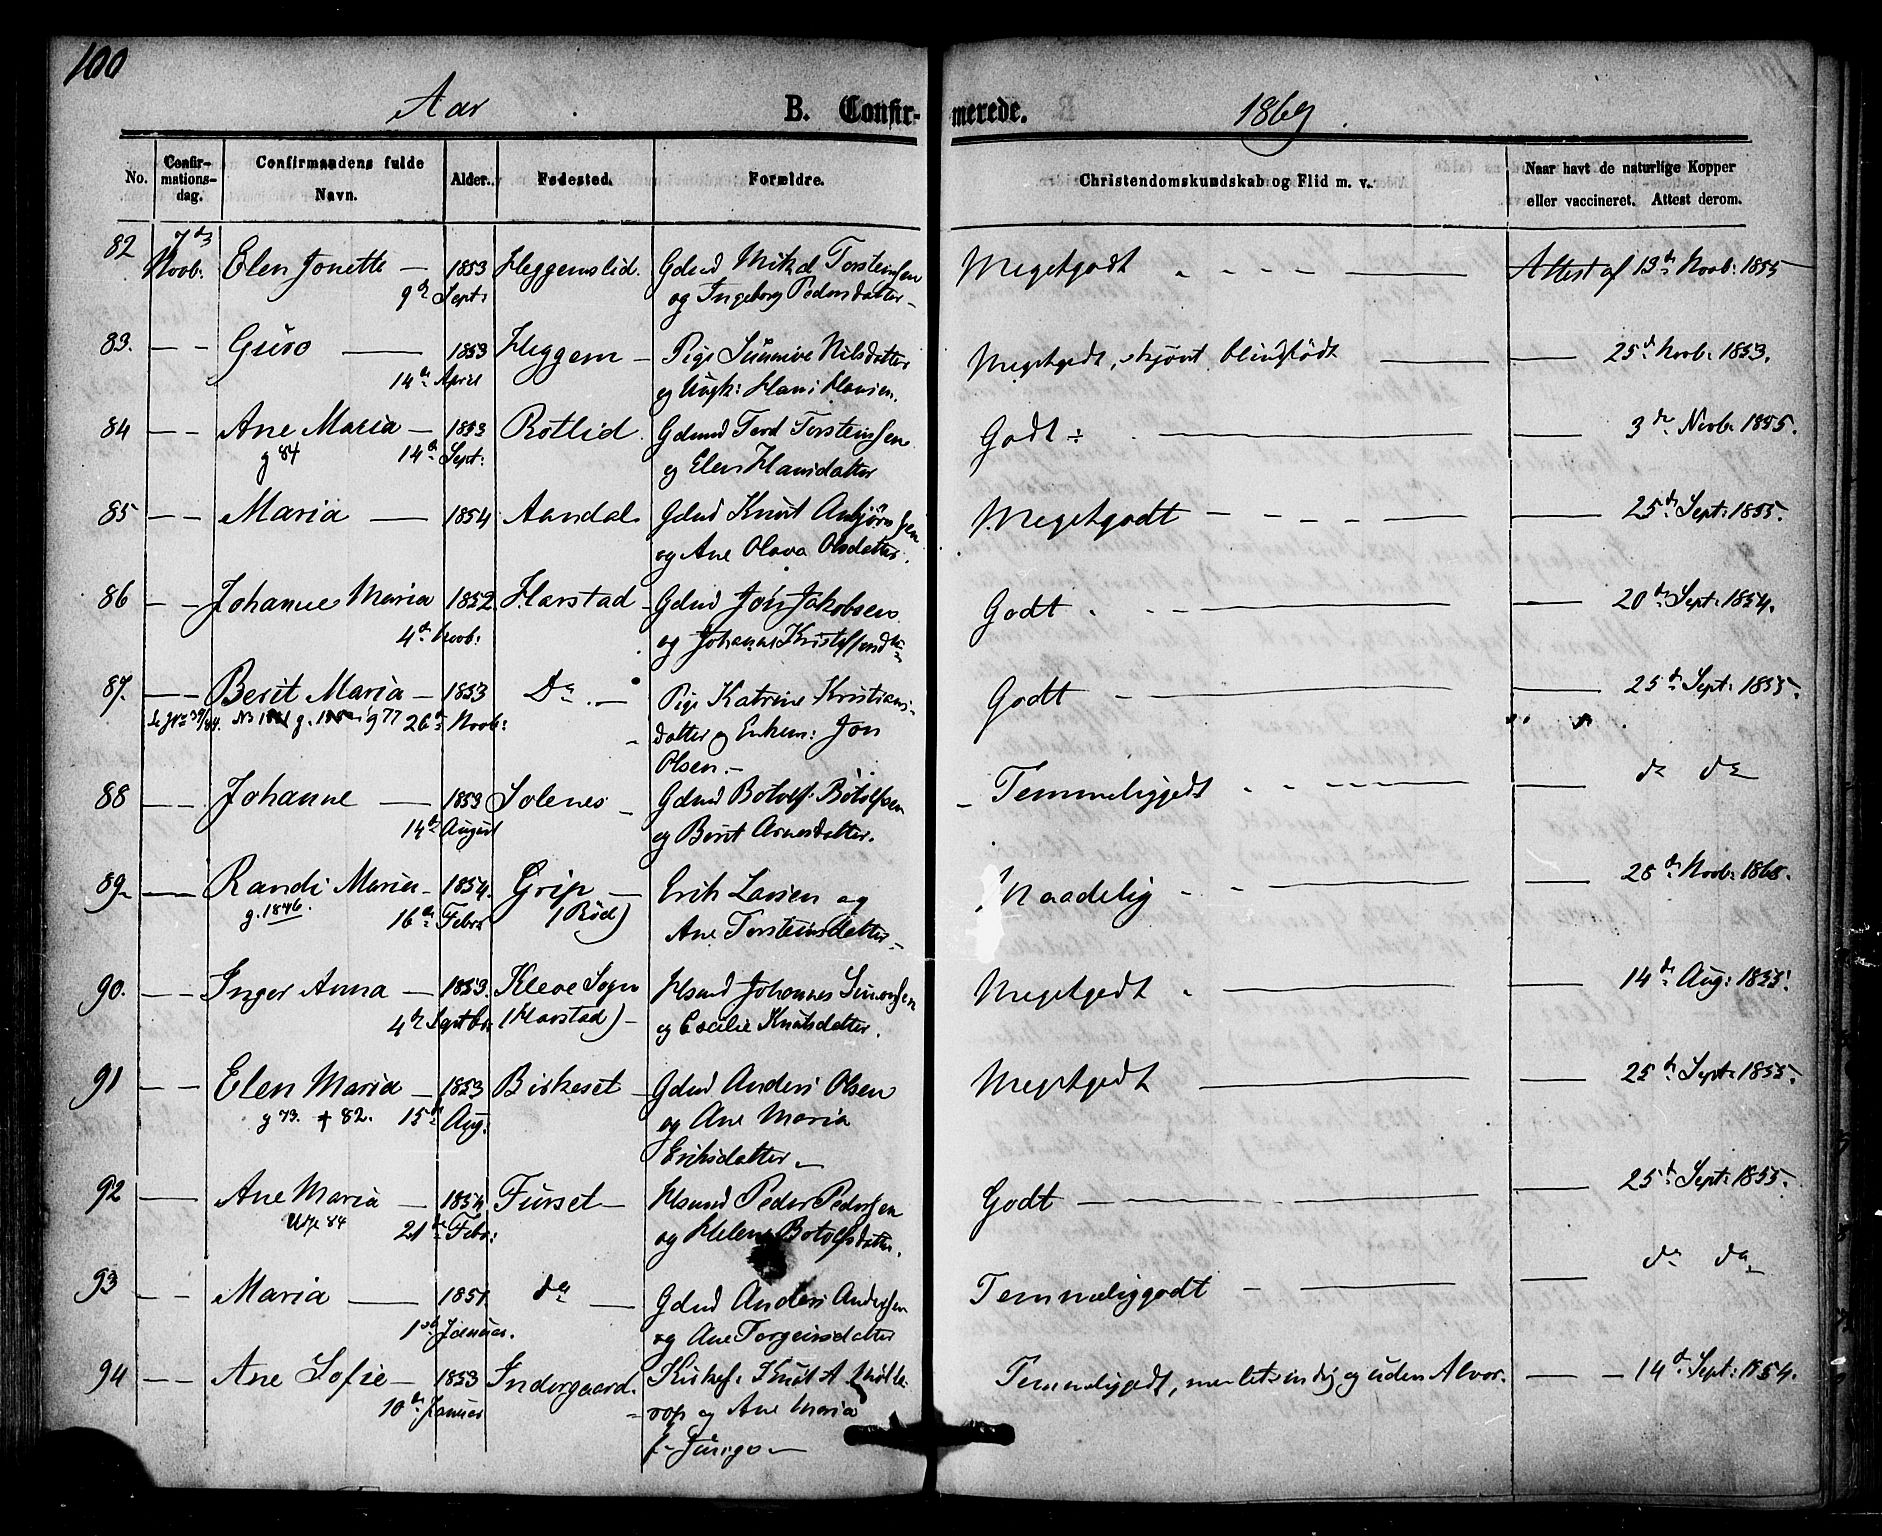 100
Aar B. Confir- merede. 1869.
No. Confir-mations-dag. Confirmandens fulde Navn. Alder. Fødested. Forældre. Christendomskundskab og Flid m. v. Naar havt de naturlige Kopper eller vaccineret. Attest derom.
82 7de Novb: Elen Jonette — 1853 Heggemslid. Gdmd Torsteinsen Megetgodt Attest af 13de Novb: 1855
9de Septr og Ingeborg Pedersdatter –
83. — — Guro — 1853 Heggem — Pige Sunnive Nilsdatter Megetgodt, skjønt blindfødt — 25de Novb: 1853.
14de April og Ungk: Hans Hansen.
84 — — Ane Maria — 1853 Rotlid. Gdmd Tord Torsteinsen Godt ÷ — 3de Novb: 1855.
g 84 14de Sept: og Elen Hansdatter
85 — — Maria — 1854 Aandal Gdmd Knut Anbjørnsen Megetgodt — 25de Sept: 1855.
og Ane Olava Olsdatter.
86 — — Johanne Maria 1852 Harstad – Gdmd Jon Jakobsen Godt — 20de Sept: 1854.
4de Novb: og Johanna
87. — — Berit Maria — 1853 Do. — Pige Katrine Kristians- Godt — 25de Sept: 1855.
g 77 26de Novb: datter og Enkem: Jon
Olsen. –
88 — — Johanne — 1853 Solenes – Gdmd Botolf Botolfsen Temmeliggodt — do do
14de August og Berit Arnesdatter.
89 — Randi Maria – 1854. Grip — Erik Larsen og Maadelig — 28de Novb: 1868.
g. 1846. 16de Febr (Rød) Ane Torsteinsdatter –
90. — — Inger Anna — 1853. Kleve Sogn Hsmd Johannes Simonsen Megetgodt — 14de Aug: 1855.
4de Septbr (Harstad) – og Cecilie Knutsdatter.
91 — — Elen Maria — 1853 Birkeset – Gdmd Anders Olsen Megetgodt — 25de Sept: 1855.
g 73. + 82. 15de Aug: og Ane Maria
Eriksdatter –
92 — Ane Maria — 1854. Furset — Hsmd Peder Pedersen Godt — 25de Sept: 1855.
84 21de Febr: og Helena Botolfsdatter.
93 — — Maria — 1851 do — Gdmd Anders Andersen Temmeliggodt — do do
1ste Januar. og Ane Torgeirsdatter
94 — — Ane Sofie — 1853 Indergaard. Kirkes. Knut A Temmeliggodt, men letsindig og uden Alvor. — — 14de Sept: 1854.
10de Januar og Ane Maria
f.